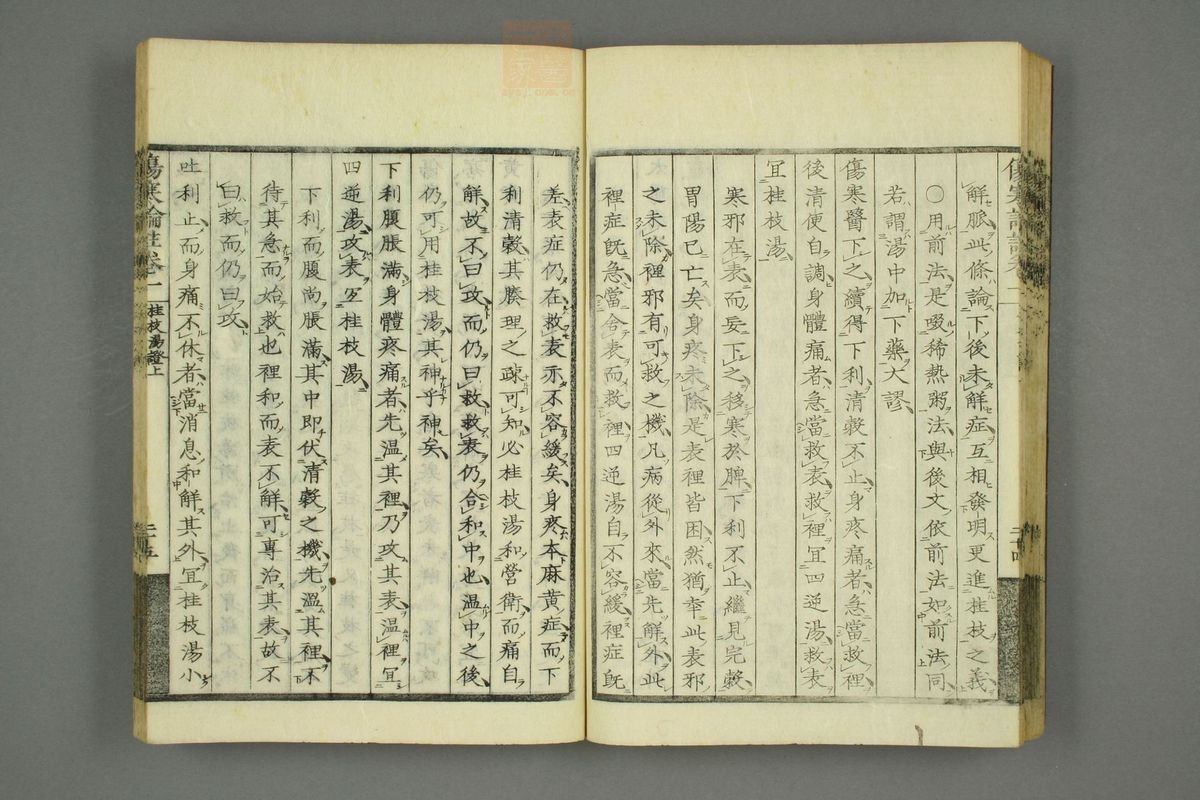 解肌此條論下後未解症互相發明更進桂枝之義
〇用前法是啜稀熱粥法與後文依前法如前法同
若謂湯中加下藥大謬
傷寒醫下之續得下利清穀不止身疼痛者急當救裡
後清便自調身體痛者急當救表救裡宜四逆湯救表
宜桂枝湯
寒邪在表而妄下之移寒於脾下利不止繼見完穀
胃陽已亡矣身疼未除是表裡皆困然猶幸此表邪
之未除裡邪有可救之機凡病從外來當先解外此
裡症既急當舍表而救裡四逆湯自不容緩裡症既
差表症仍在救表亦不容緩矣身疼本麻黃症而下
利清穀其腠理之疎可知必桂枝湯和營衛而痛自
解故不曰攻而仍曰救救表仍合和中也温中之後
仍可用桂枝湯其神乎神矣
下利腹脹滿身體疼痛者先温其裡乃攻其表温裡宜
四逆湯攻表宜桂枝湯
下利而腹尚脹滿其中即伏清穀之機先溫其裡不
待其急而始救也裡和而表不解可專治其表故不
曰救而仍曰攻
吐利止而身痛不休者當消息和解其外宜桂枝湯小
傷寒論註卷一
桂枝湯證上
二十五
二十四